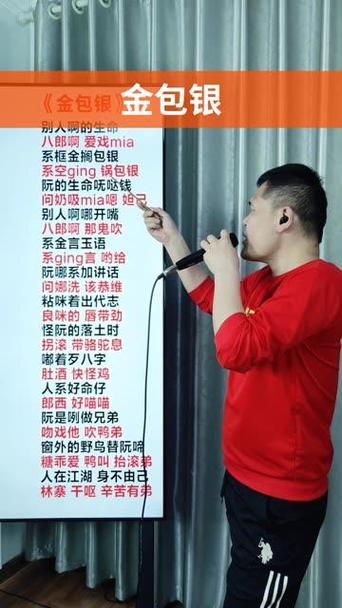 《金包银》
金包银
别人啊的生命
八郎啊 爱戏mia
系框金搁包银
系空ging 锅包银
阮的生命呒哒钱
问奶吸mia嗯 妲己
别人啊哪开嘴
八郎啊 那鬼吹
系金言玉语
系ging言 哟给
阮哪系加讲话
问娜洗 该恭维
粘咪着出代志
良咪的 唇带劲
怪阮的落土时
拐滚 带骆驼息
嘟着歹八字
肚酒 快怪鸡
人系好命仔
郎西 好喵喵
阮是咧做兄弟
吻戏他 吹鸭弟
窗外的野鸟替阮啼
糖乖爱 鸭叫 抬滚弟
人在江湖 身不由己
林寨 干呕 辛苦有弟